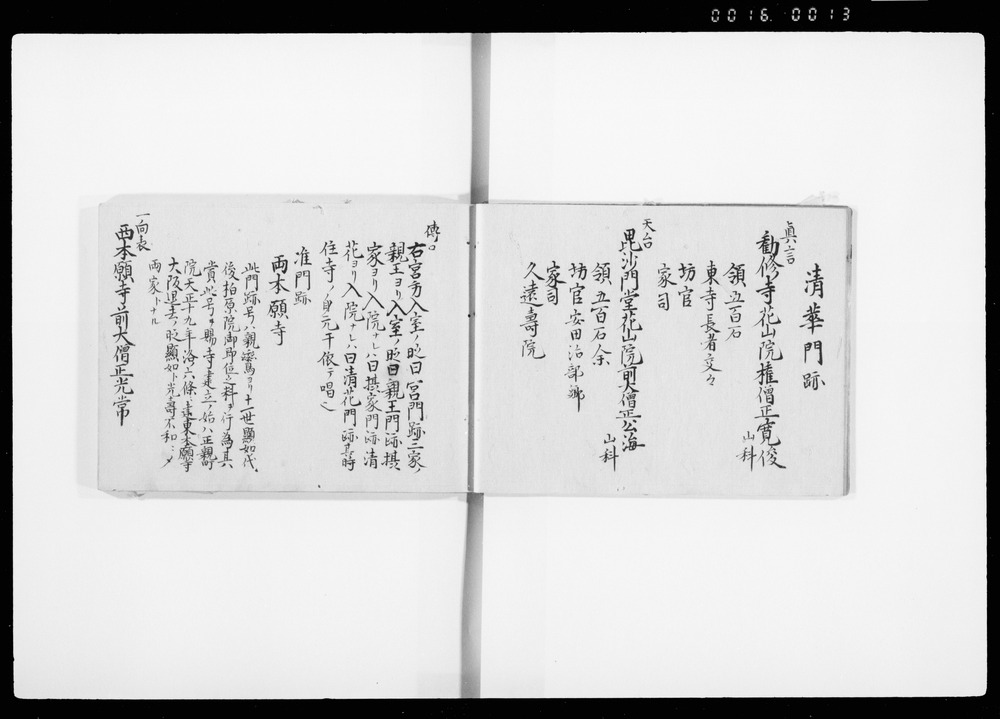 0016. 0013
清華門跡
真言
勧修寺花山院権僧正寛俊
山科
領五百石
東寺長者交々
坊官
家司
天台
毘沙門堂花山院前大僧正公海
山科
領五百石余
坊官安田治部卿
家司
久遠壽院
傳ロ
右宮方入室ノ時曰宮門跡三家ノ
親王ヨリ入室ノ時曰親王門跡摂
家ヨリ入院ナレハ曰摂家門跡清
花ヨリ入院ナレハ曰清花門跡其時
住寺ノ身元干依テ唱之
准門跡
両本願寺
此門跡号ハ親鸞ヨリ十一世顕如代
後柏原院御即位之料ヲ行為其
賞此号ヲ賜寺建立ノ始ハ正親町
院天正十九年洛六條ニ遠東本願寺
大阪退去ノ時顕如ト光壽不和ニメ
両家トナル
一向衣
西本願寺前大僧正光常